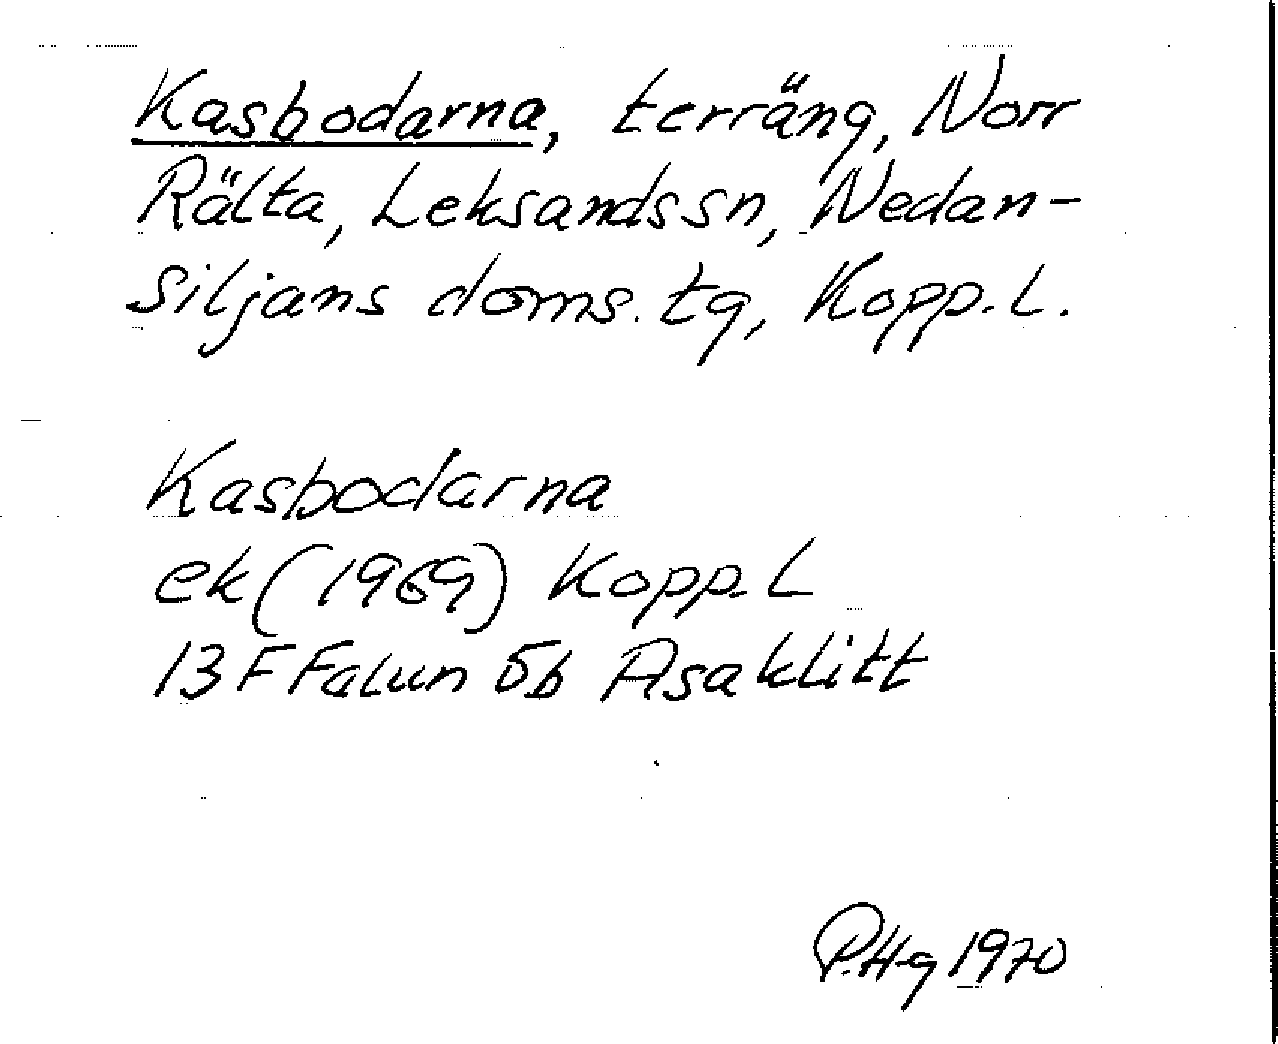 Kasbodarna, terräng, Norr
Rälta, Leksandssn, Nedan-
Siljans doms. tg, Kopp. L.
Kasbodarna
ek (1969) Kopp. L
13 F Falun 5b Åsaklitt
P.Hg 1970